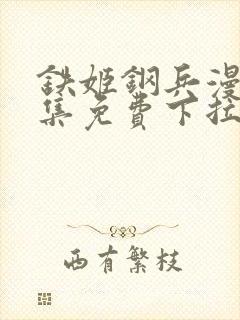 鉄姬鋼兵漫
集免費下拉
西有繁枝